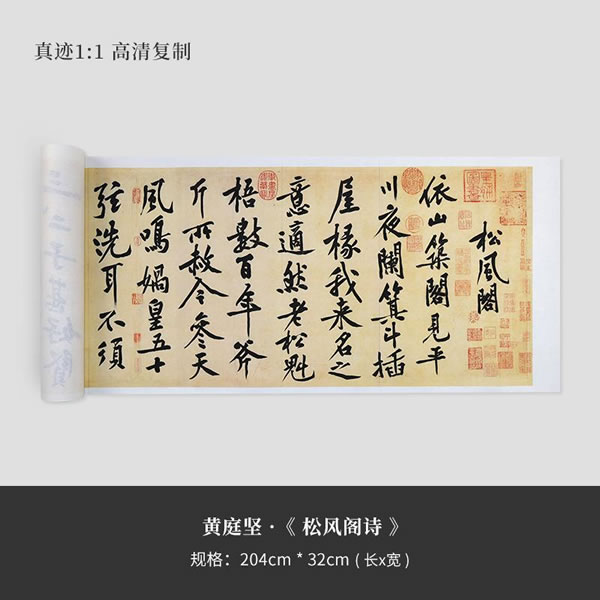 真迹1:1 高清复制
松風閣
依山築閣見平
川夜闌箕斗插
屋椽我来名之
意適然老松魁
梧數百年斧
斤所赦今參天
風鳴媧皇五十
弦洗耳不須
黄庭坚 ·《 松风阁诗 》
规格：204cm * 32cm ( 长x宽 )